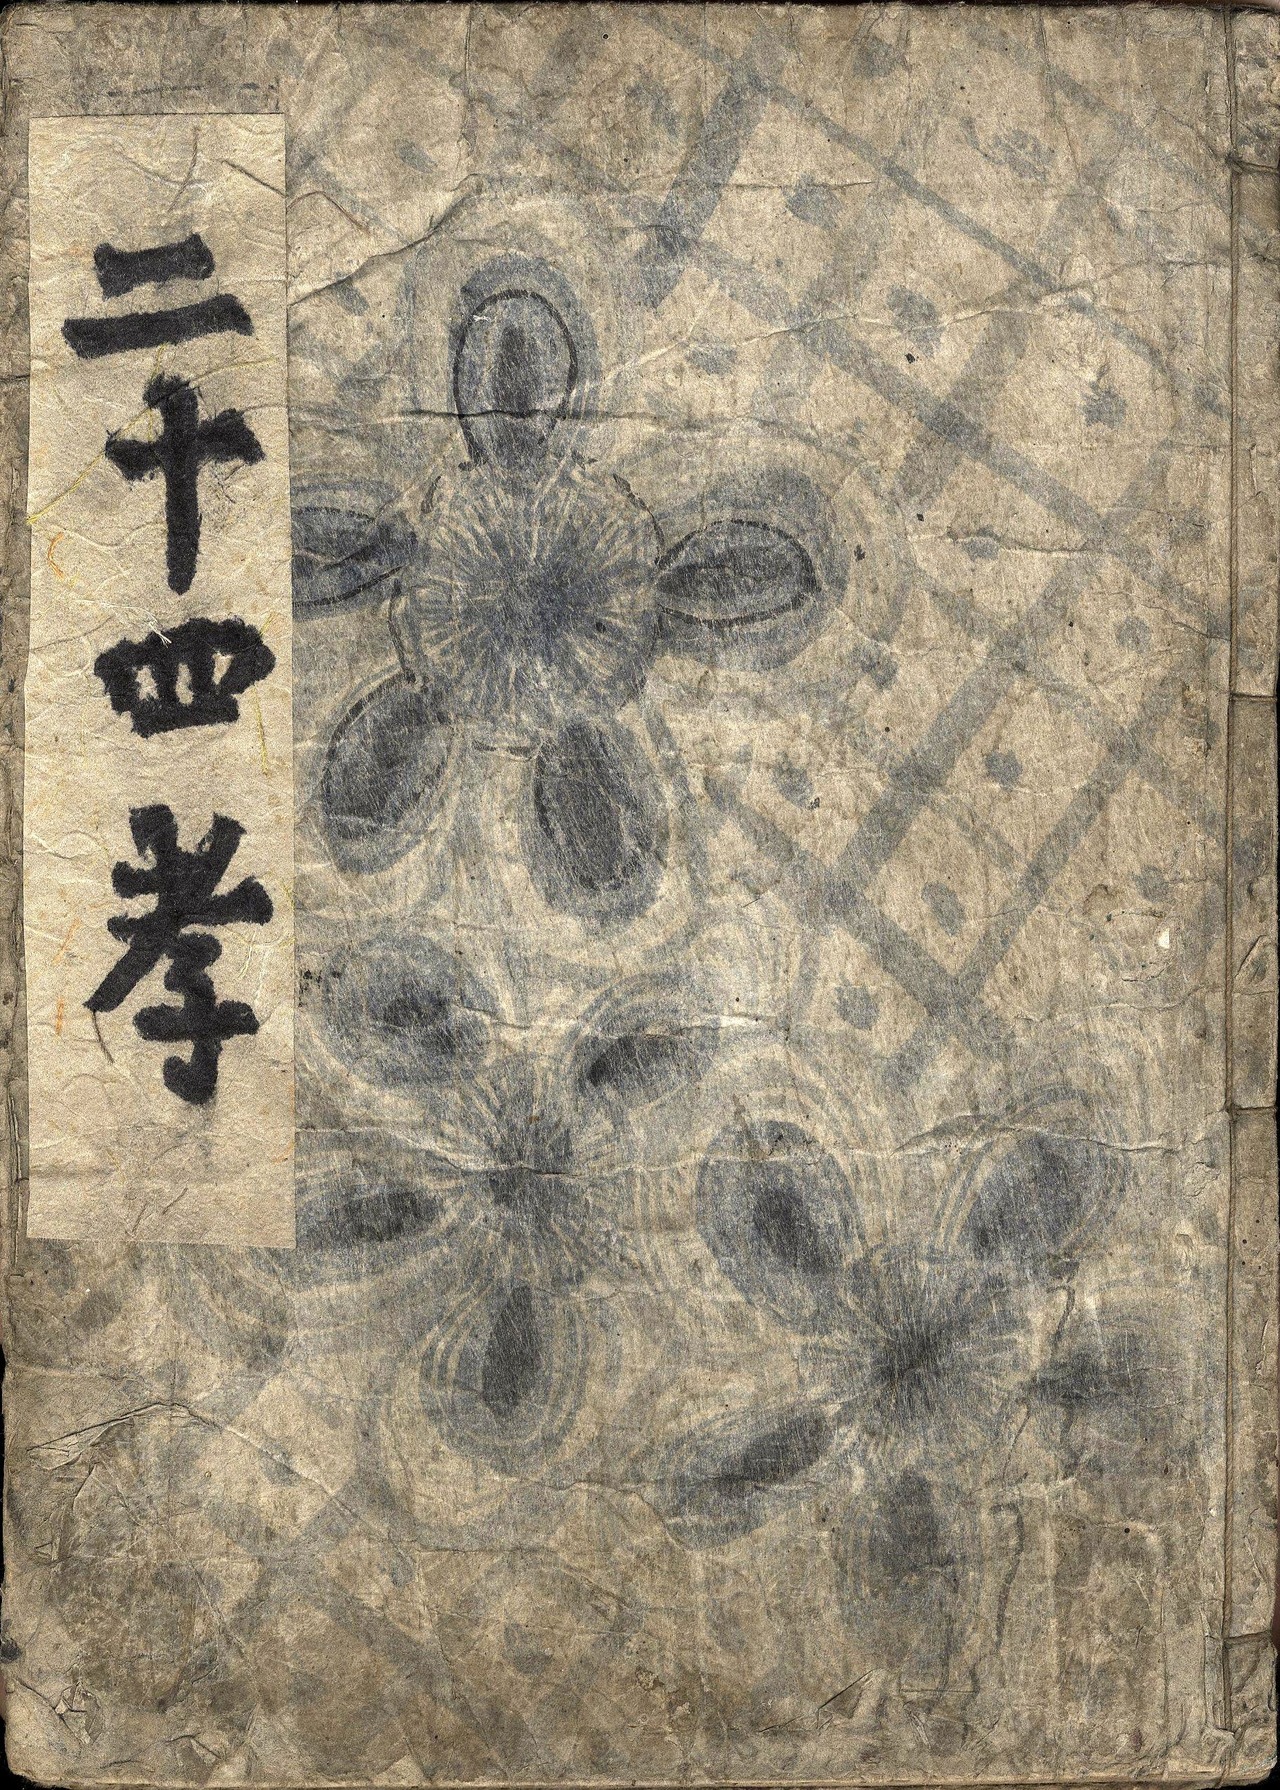 二十四孝